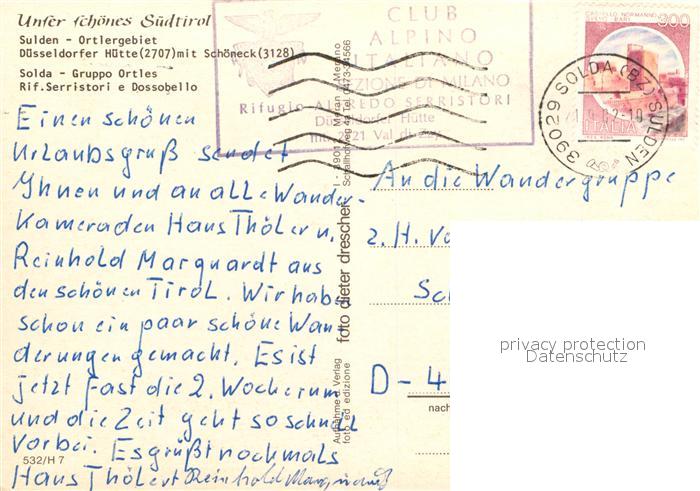 Unser schönes Südtirol
Sulden - Ortlergebiet
Düsseldorfer Hütte(2707)mit Schöneck(3128)
Solda - Gruppo Ortles
Rif.Serristori e Dossobello
CLUB
ALPINO
ITALIANO
SEZIONE DI MILANO
Rifugio ALFREDO SERRISTORI
Düsseldorfer Hütte
CASTELLO NORMANNO
SVEVO BARI
300
ITALIA
39029 SOLDA (BZ) SULDEN
Einen schönen
Urlaubsgruß sendet
Ihnen und an alle Wander-
Kameraden Hans Thölern,
Reinhold Marquardt aus
den schönen Tirol. Wir habe
schon ein paar schöne Wan
derungen gemacht. Es ist
jetzt fast die 2. Woche rum
und die Zeit geht so schnell
vorbei. Es grüßt nochmals
Hans Thölert Reinhold
532/H 7
An die Wandergruppe
z. H.
Sc
D - 4
nach
foto dieter drescher
Aufnahme u. Verlag
foto ed edizione
privacy protection
Datenschutz